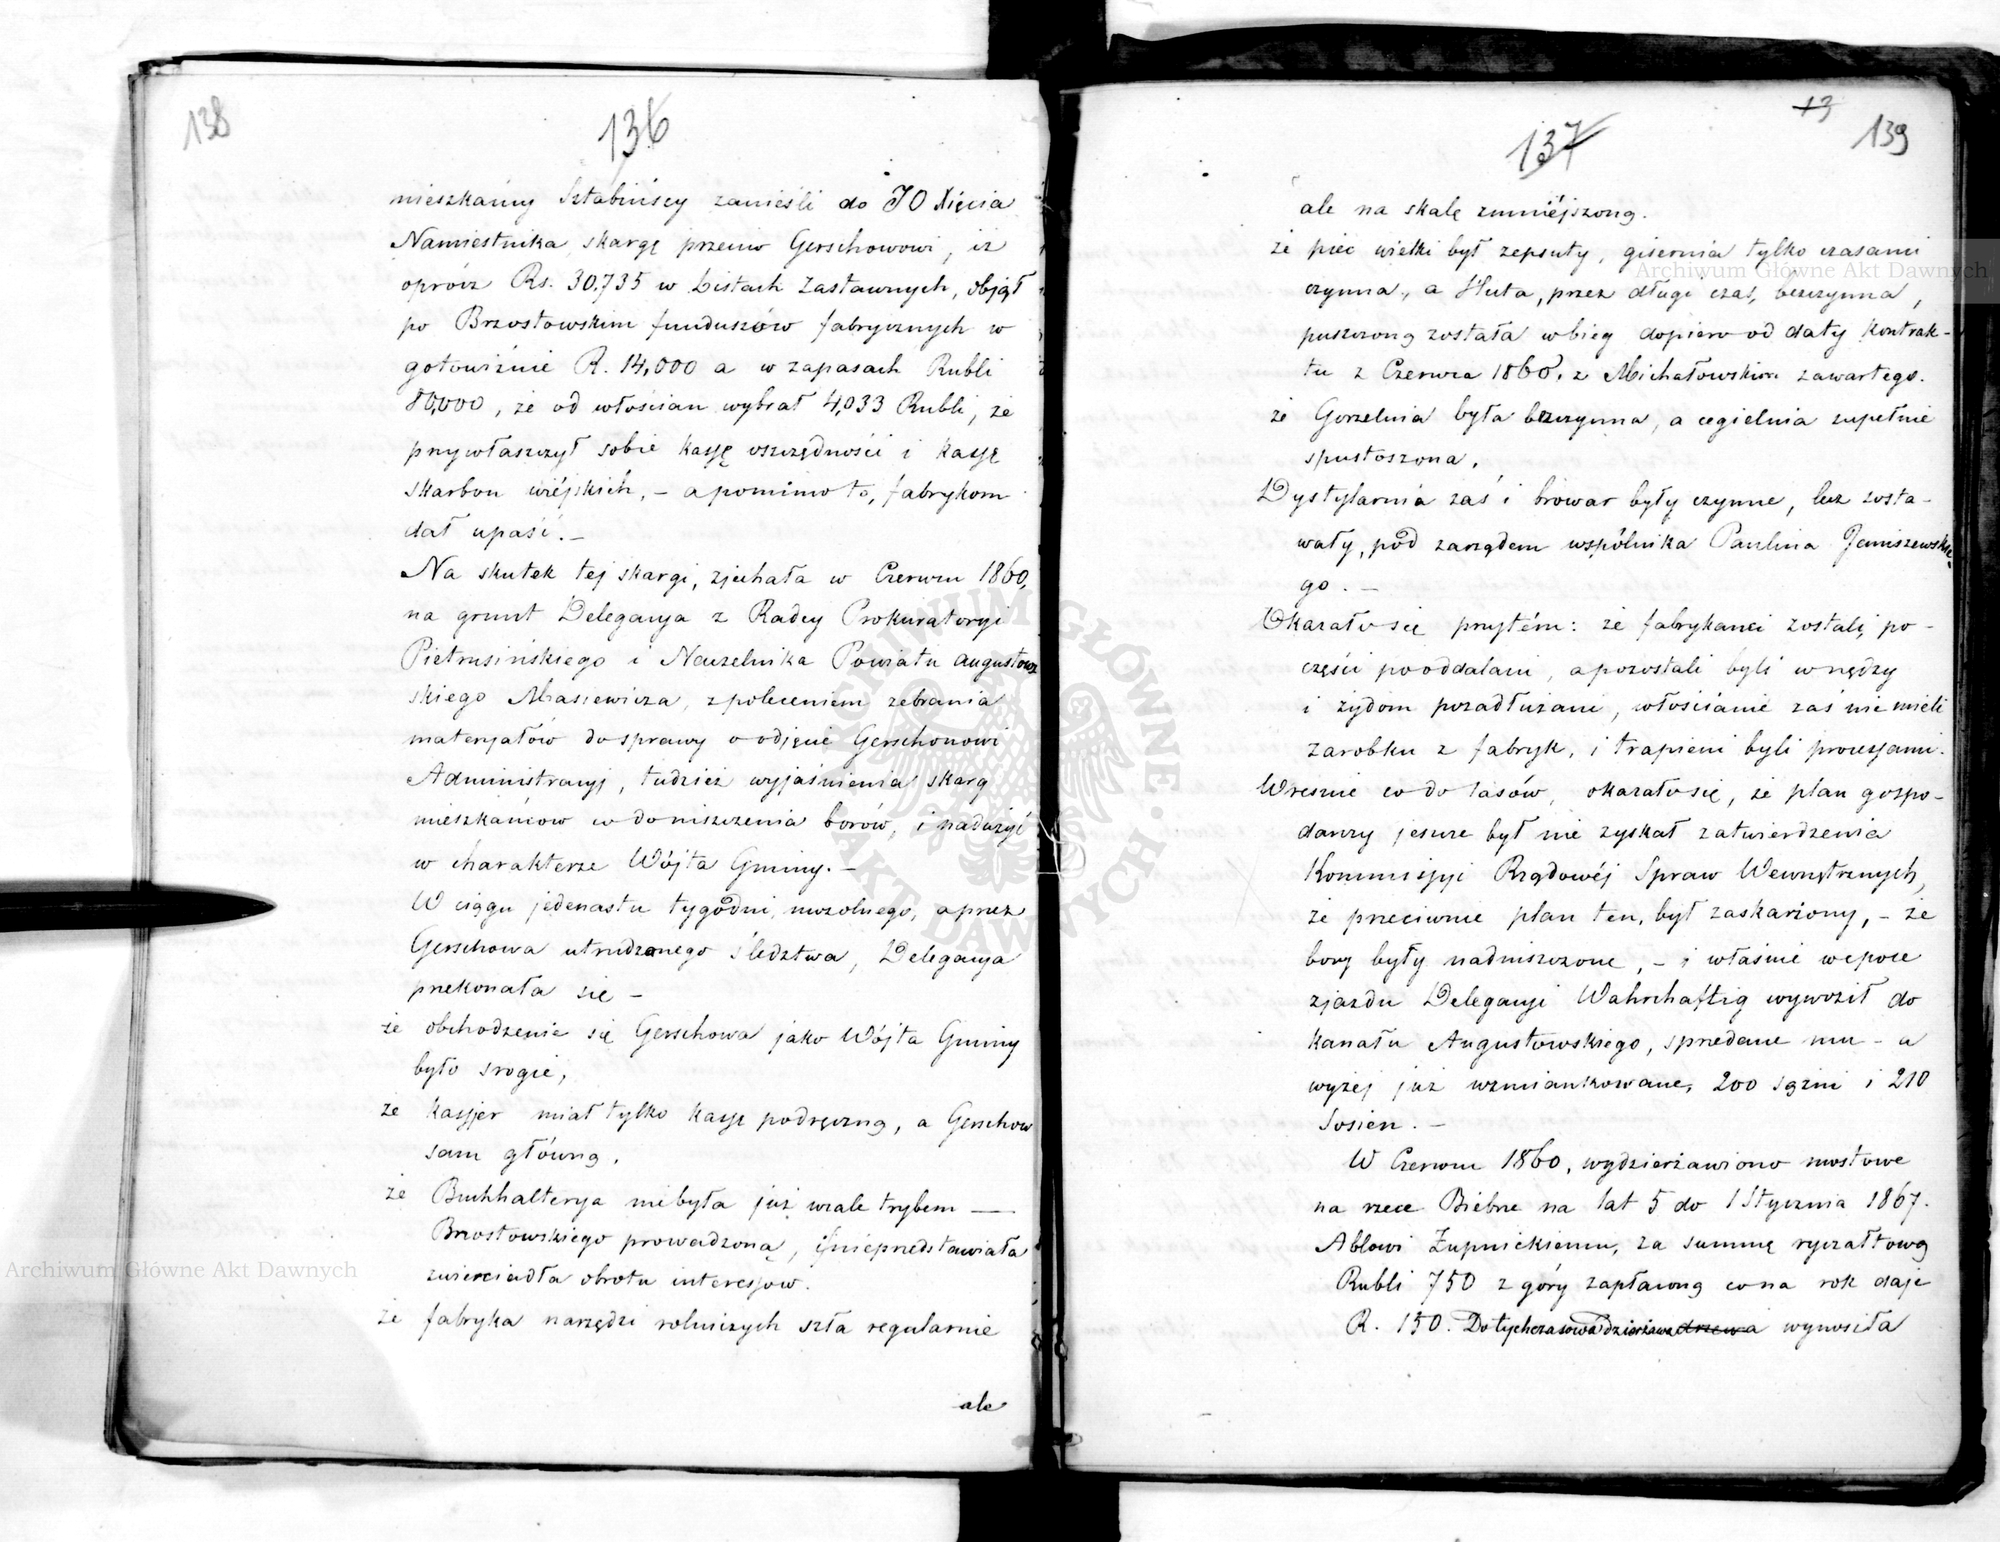 138
136
mieszkańcy Sztabińscy zanieśli do JO Xięcia
Namiestnika skargę przeciw Gerschowowi, iż
oprócz Rs. 30.735 w Listach Zastawnych, objął
po Brzostowskim funduszów fabrycznych w
gotowiźnie R. 14,000 a w zapasach Rubli
80,000, że od włościan wybrał 4,033 Rubli, że
przywłaszczył sobie kassę oszczędności i kassę
skarbon wiéjskich, – a pomimo to, fabrykom
dał upaść. –
Na skutek tej skargi, zjechała w Czerwcu 1860,
na grunt Delegacya z Radcy Prokuratoryi
Pietrusińskiego i Naczelnika Powiatu augustow
skiego Masiewicza, z poleceniem zebrania
materyałów do sprawy o odjęcie Gerschonowi
Administracyj, tudzież wyjaśnienia skarg
mieszkańców co do niszczenia borów, i nadużyć
w charakterze Wójta Gminy. –
W ciągu jedenastu tygodni, mozolnego, a przez
Gerschowa utrudzonego śledztwa, Delegacya
przekonała się –
że obchodzenie się Gerschowa jako Wójta Gminy
było srogie,
że kassjer miał tylko kassę podręczną, a Gerschow
sam główną.
że Buchhalterya niebyła już wcale trybem —
Brzostowskiego prowadzoną, i nieprzedstawiała
zwierciadła obrotu interessów.
że fabryka narzędzi rolniczych szła regularnie
ale
13
137
139
ale na skalę zmniéjszoną.
że piec wielki był zepsuty, gisernia tylko czasami
czynna, a Huta, przez długi czas, bezczynna,
puszczoną została w bieg dopiero od daty kontrak-
tu z Czerwca 1860. z Michałowskim zawartego.
że Gorzelnia była bezczynna, a cegielnia zupełnie
spustoszona.
Dystylarnia zaś i browar były czynne, lecz zosta-
wały, pod zarządem wspólnika Paulina Janiszewskie
go. –
Okazało się przytém: że fabrykanci zostali, po-
części pooddalani, a pozostali byli w nędzy
i żydom pozadłużani, włościanie zaś nie mieli
zarobku z fabryk, i trapieni byli processami.
Wreszcie co do lasów, okazało się, że plan gospo-
darczy jeszcze był nie zyskał zatwierdzenia
Kommissyi Rządowéj Spraw Wewnętrznych,
że przeciwnie plan ten, był zaskarżony, – że
bory były nadniszczone, – i właśnie w eporce
zjazdu Delegacyi Wahrhaftig wywoził do
kanału Augustowskiego, sprzedane mu – a
wyżej już wzmiankowane, 200 sążni i 210
Sosien. –
W Czerwcu 1860, wydzierżawiono mostowe
na rzece Biebrze na lat 5 do 1 Stycznia 1867.
Ablowi Żupnickiemu, za summę ryczałtową
Rubli 750 z góry zapłaconą co na rok daje
R. 150. Dotychczasowa dzierżawa drzewa wynosiła
Archiwum Główne Akt Dawnych
Archiwum Główne Akt Dawnych
ARCHIWUM GŁÓWNE AKT DAWNYCH